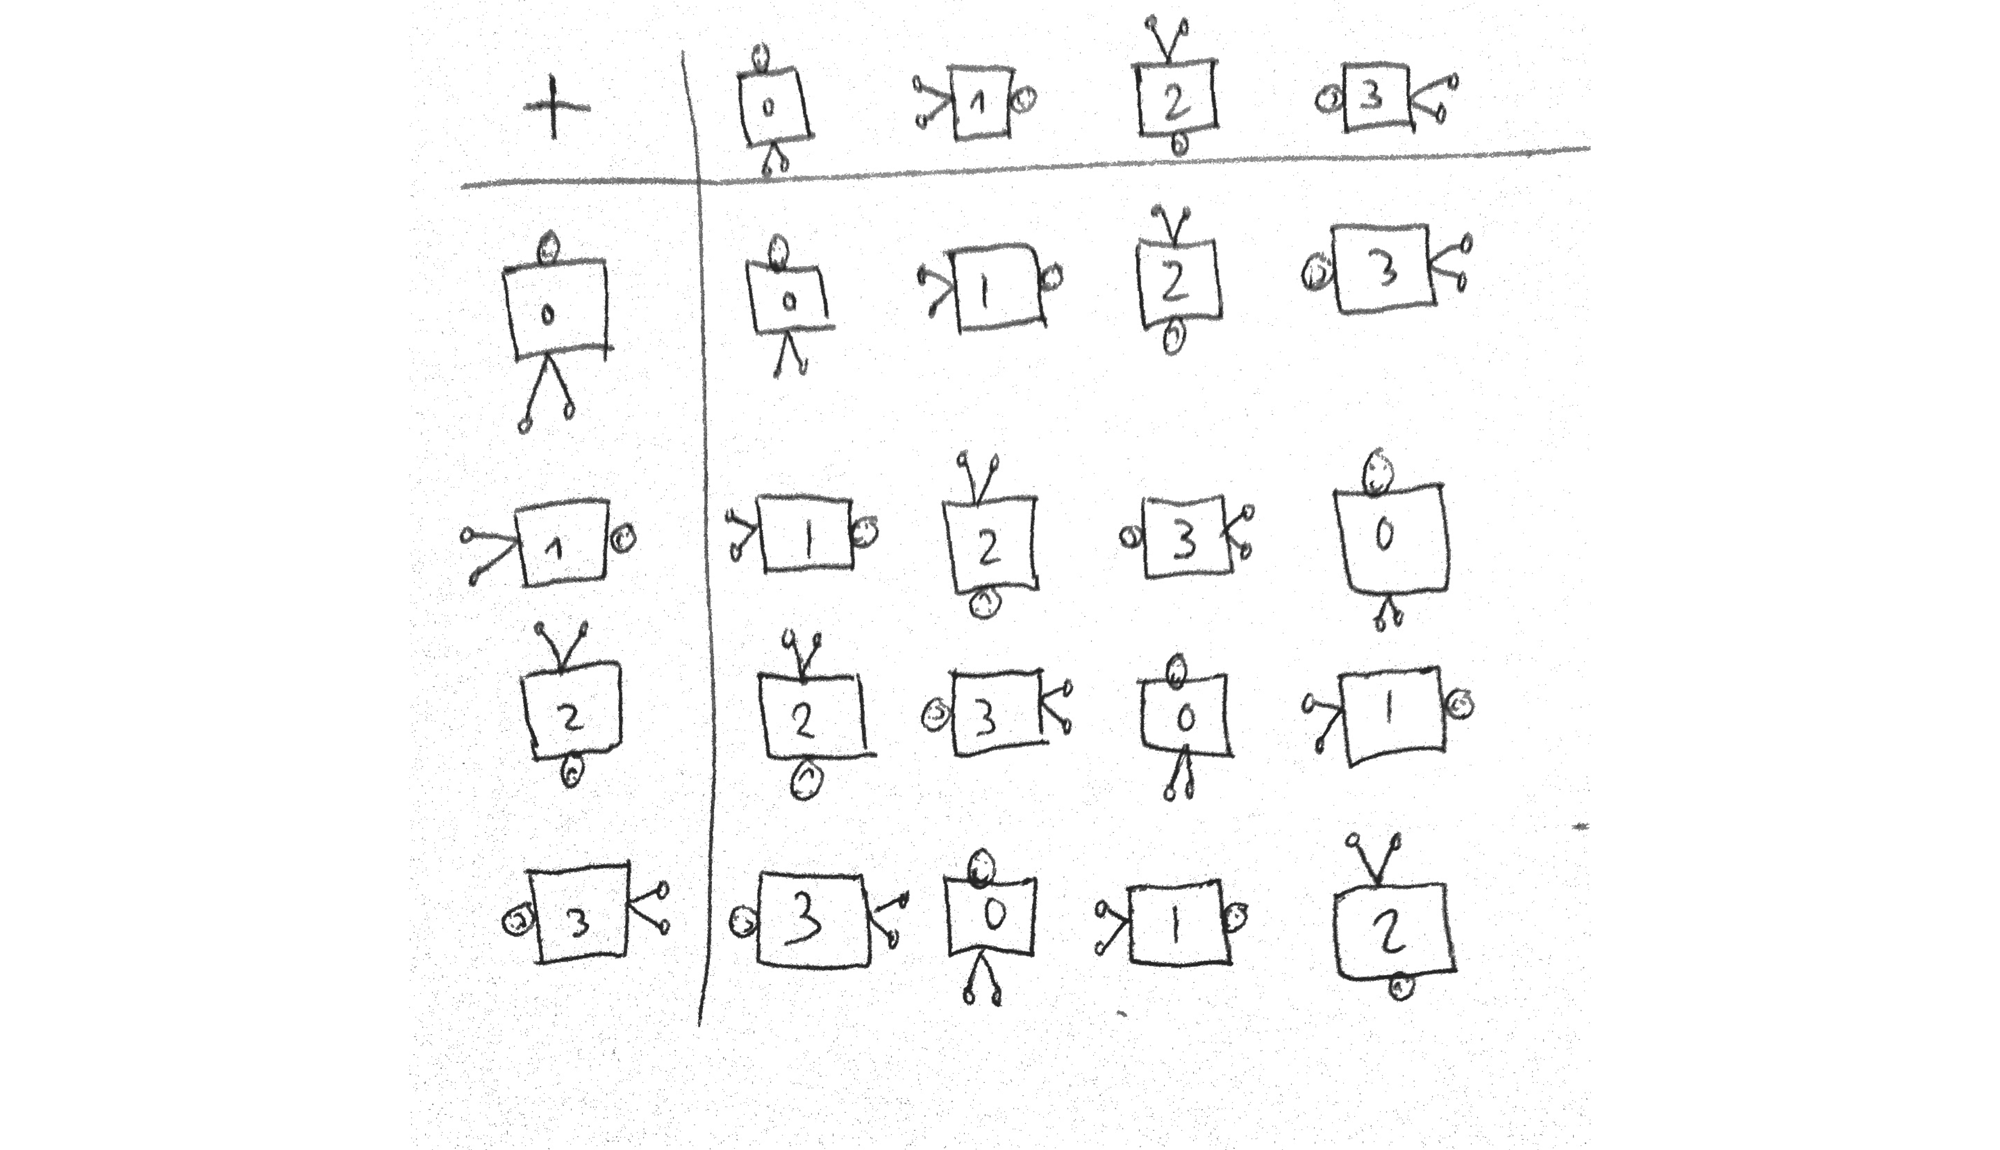 + 0 1 2 3
0 0 1 2 3
1 1 2 3 0
2 2 3 0 1
3 3 0 1 2